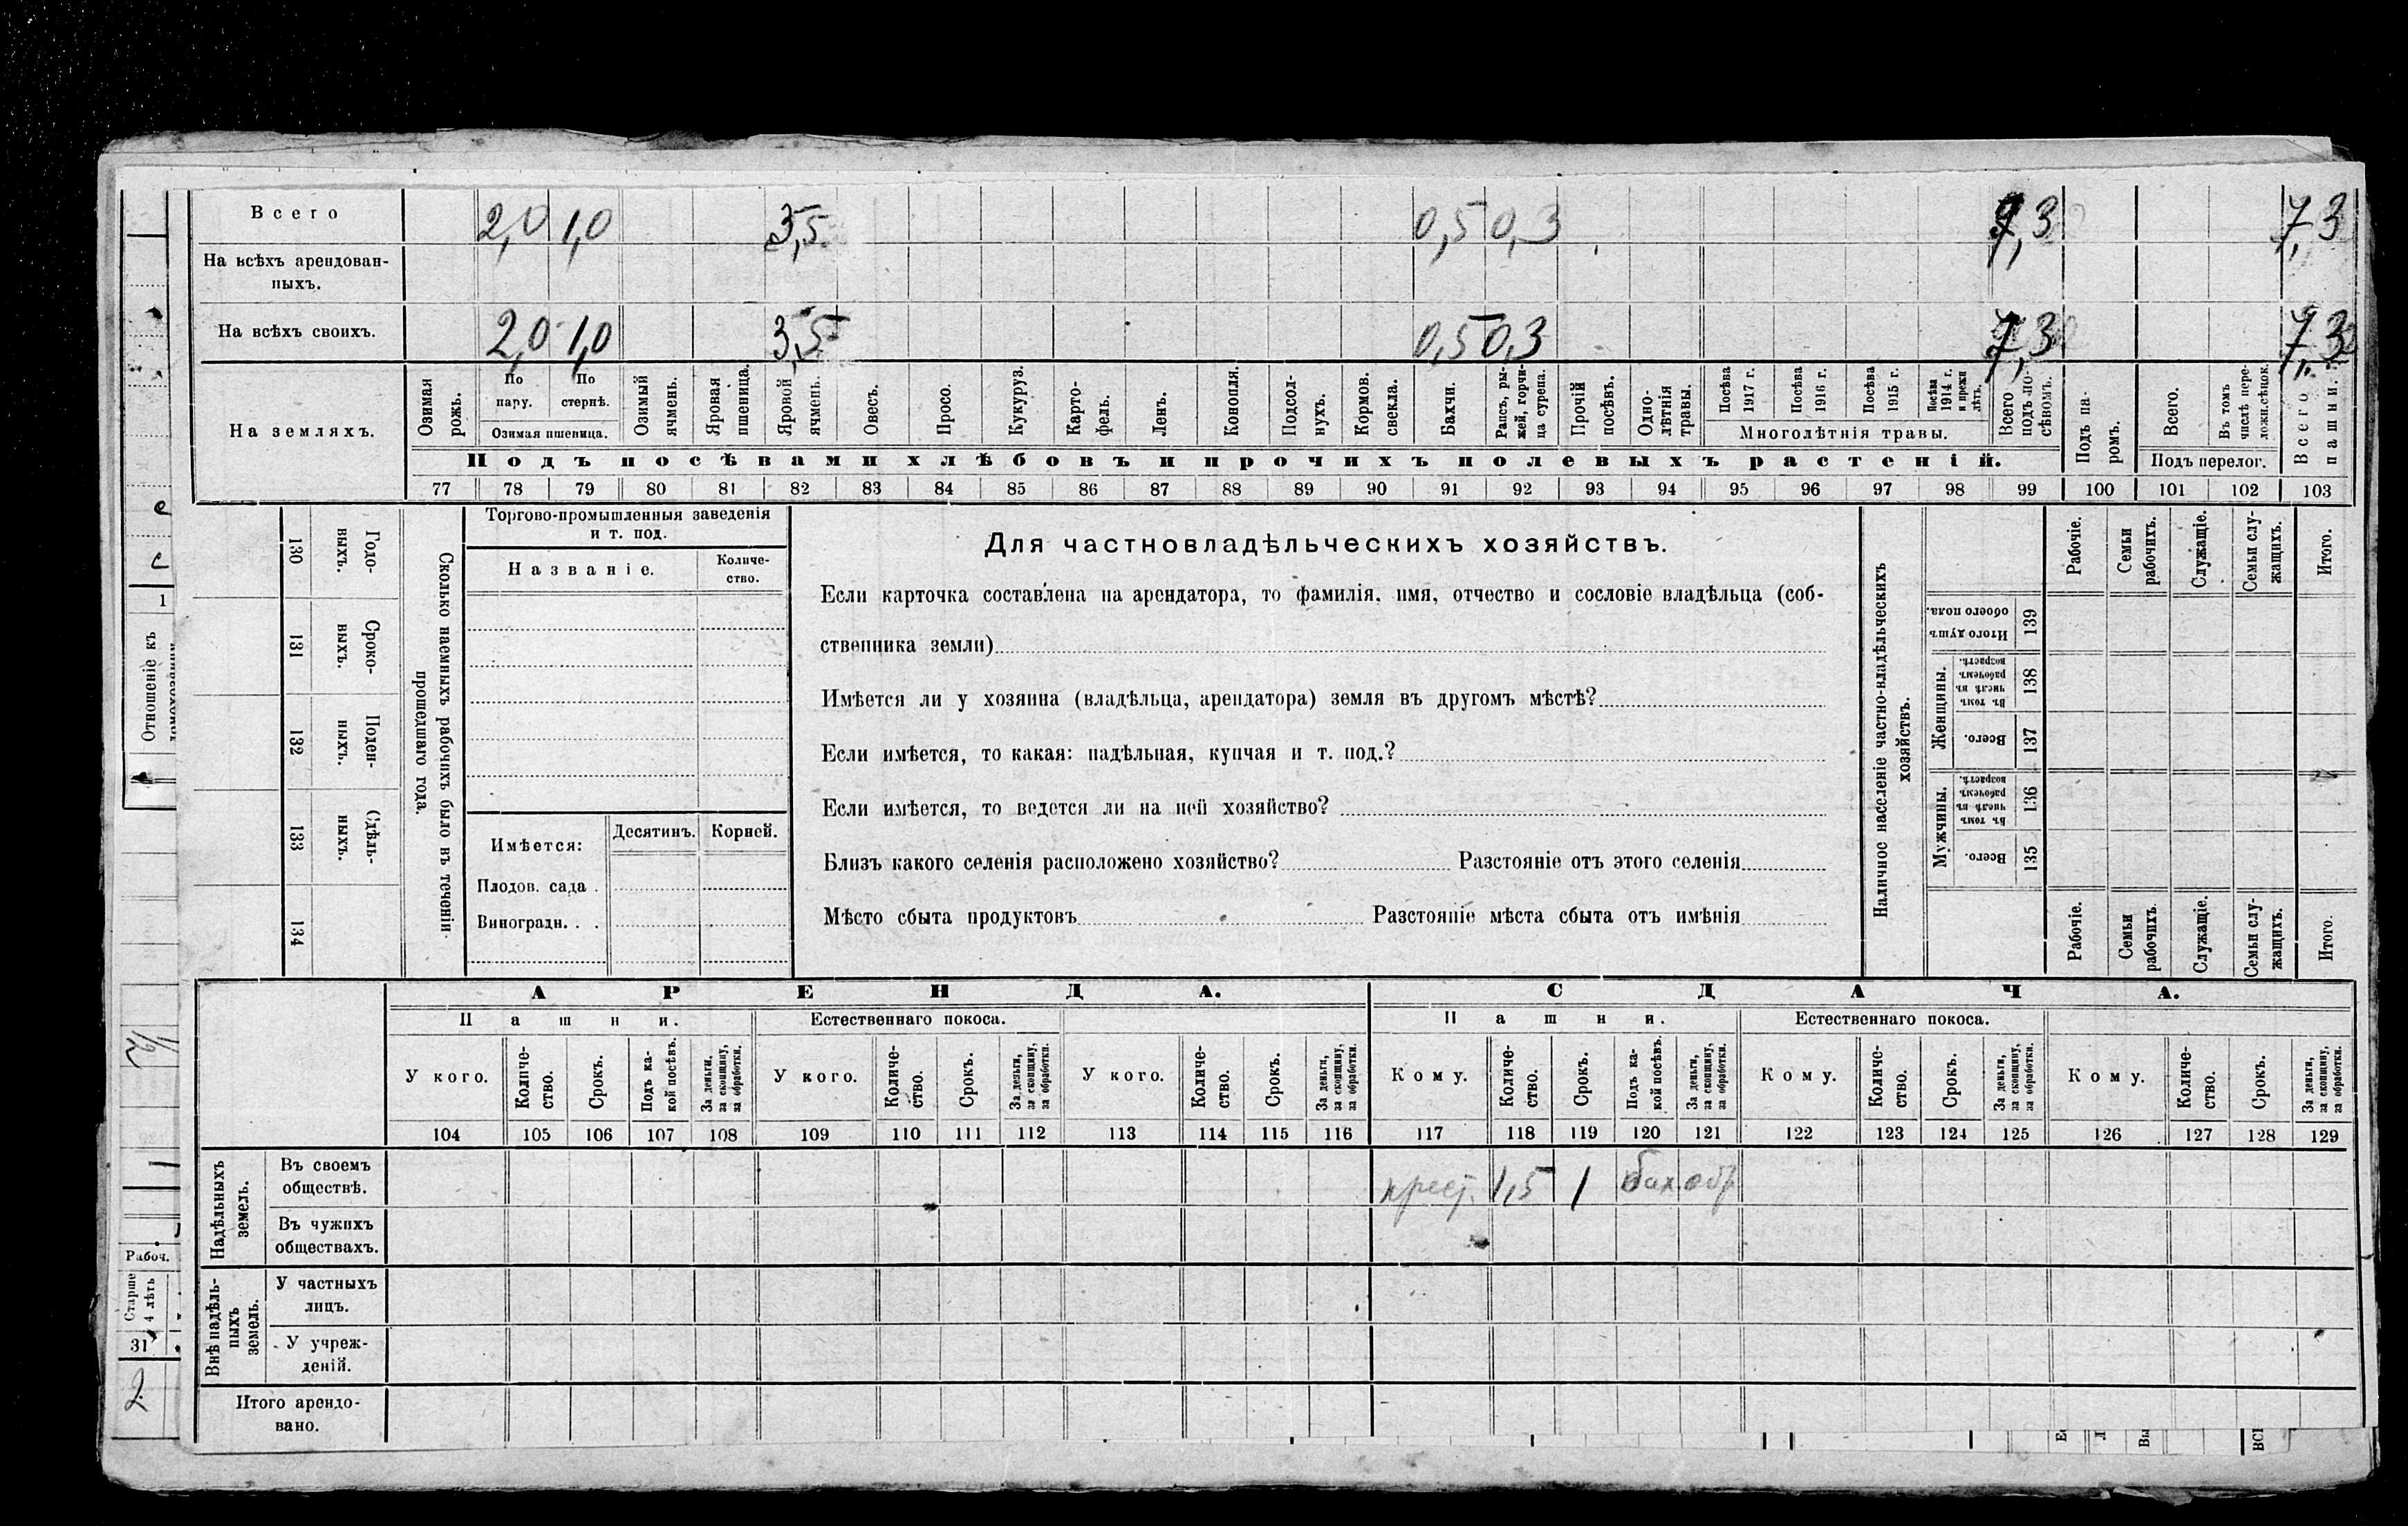 Всего 2,0 1,0 3,5 0,5 0,3 7,3 7,3
На всѣхъ арендован-
ныхъ.
На всѣхъ своихъ. 2,0 1,0 3,5 0,5 0,3 7,3 7,3
На земляхъ.
Озимая рожь.
По пару.
По стернѣ.
Озимая пшеница.
Озимый ячмень.
Яровая пшеница.
Яровой ячмень.
Овесъ.
Просо.
Кукуруз.
Карто-
фель.
Ленъ.
Конопля.
Подсол-
нухъ.
Кормов.
свекла.
Бахчи.
Рапсъ, ры-
жей, горчи-
ца сурепа.
Прочій
посѣвъ.
Одно-
лѣтнія
травы.
Посѣва
1917 г.
Посѣва
1916 г.
Посѣва
1915 г.
Посѣва
1914 г.
и прежн
лѣтъ.
Многолѣтнія травы.
Всего
подъ по-
сѣвомъ.
Подъ па-
ромъ.
Всего.
Въ томъ
числѣ пере-
ложн.сѣнок.
Подъ перелог.
Всего
пашни.
Подъ посѣвами хлѣбовъ и прочихъ полевыхъ растеній.
77 78 79 80 81 82 83 84 85 86 87 88 89 90 91 92 93 94 95 96 97 98 99 100 101 102 103
Отношеніе къ
1
Годо-
выхъ.
130
Сроко-
выхъ.
131
Поден-
ныхъ.
132
Сдѣль-
ныхъ.
133
134
Сколько наемныхъ рабочихъ было въ теченіи
прошедшаго года.
Торгово-промышленныя заведенія
и т. под.
Названіе.
Количе-
ство.
Имѣется:
Десятинъ.
Корней.
Плодов. сада .
Виноградн. . .
Для частновладѣльческихъ хозяйствъ.
Если карточка составлена на арендатора, то фамилія, имя, отчество и сословіе владѣльца (соб-
ственника земли)
Имѣется ли у хозяина (владѣльца, арендатора) земля въ другомъ мѣстѣ?
Если имѣется, то какая: надѣльная, купчая и т. под.?
Если имѣется, то ведется ли на ней хозяйство?
Близъ какого селенія расположено хозяйство? Разстояніе отъ этого селенія
Мѣсто сбыта продуктовъ Разстояніе мѣста сбыта отъ имѣнія
Наличное населеніе частно-владѣльческихъ
хозяйствъ.
Рабочіе.
Семьи
рабочихъ.
Служащіе.
Семьи слу-
жащихъ.
Итого.
Итого душ
обоего пола.
139
Женщины.
Въ томъ
числѣ въ
рабочемъ
возрастѣ.
138
Всего.
137
Мужчины.
Въ томъ
числѣ въ
рабочемъ
возрастѣ.
136
Всего.
135
Рабочіе.
Семьи
рабочихъ.
Служащіе.
Семьи слу-
жащихъ.
Итого
АРЕНДА. СДАЧА.
Пашни. Естественнаго покоса. Пашни. Естественнаго покоса.
У кого.
Количе-
ство.
Срокъ.
Подъ ка-
кой посѣвъ.
За деньги,
за скопщину,
за обработки.
У кого.
Количе-
ство.
Срокъ.
За деньги,
за скопщину,
за обработки.
У кого.
Количе-
ство.
Срокъ.
За деньги,
за скопщину,
за обработки.
Кому.
Количе-
ство.
Срокъ.
Подъ ка-
кой посѣвъ.
За деньги,
за скопщину,
за обработки.
Кому.
Количе-
ство.
Срокъ.
За деньги,
за скопщину,
за обработки.
Кому.
Количе-
ство.
Срокъ.
За деньги,
за скопщину,
за обработки.
104 105 106 107 108 109 110 111 112 113 114 115 116 117 118 119 120 121 122 123 124 125 126 127 128 129
Надѣльныхъ
земель.
Въ своемъ
обществѣ.
крест. 1,5 1 бах обр
Въ чужихъ
обществахъ.
Внѣ надѣль-
ныхъ
земель.
У частныхъ
лицъ.
У учреж-
деній.
Итого арендо-
вано.
1/2
Рабоч.
Старше
4 лѣтъ
31
2